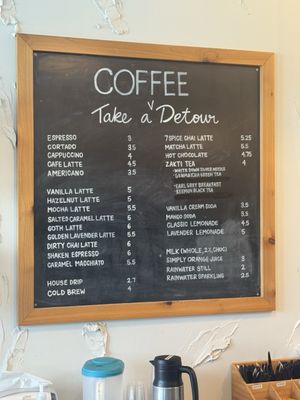 COFFEE
Take a Detour
ESPRESSO 3
CORTADO 3.5
CAPPUCCINO 4
CAFE LATTE 4.5
AMERICANO 3.5
VANILLA LATTE 5
HAZELNUT LATTE 5
MOCHA LATTE 5.5
SALTED CARAMEL LATTE 6
GOTH LATTE 6
GOLDEN LAVENDER LATTE 5.5
DIRTY CHAI LATTE 6
SHAKEN ESPRESSO 6
CARAMEL MACCHIATO 5.5
HOUSE DRIP 2.7
COLD BREW 4
7 SPICE CHAI LATTE 5.25
MATCHA LATTE 5.5
HOT CHOCOLATE 4.75
ZAKTI TEA 4
GREEN TEA
EARL GREY BREAKFAST
BLACK TEA
VANILLA CREAM SODA 3.5
MANGO SODA 3.5
CLASSIC LEMONADE 4.5
LAVENDER LEMONADE 5
MILK (WHOLE, 2%, CHOC)
SIMPLY ORANGE JUICE 3
RAINWATER STILL 2
RAINWATER SPARKLING 2.5